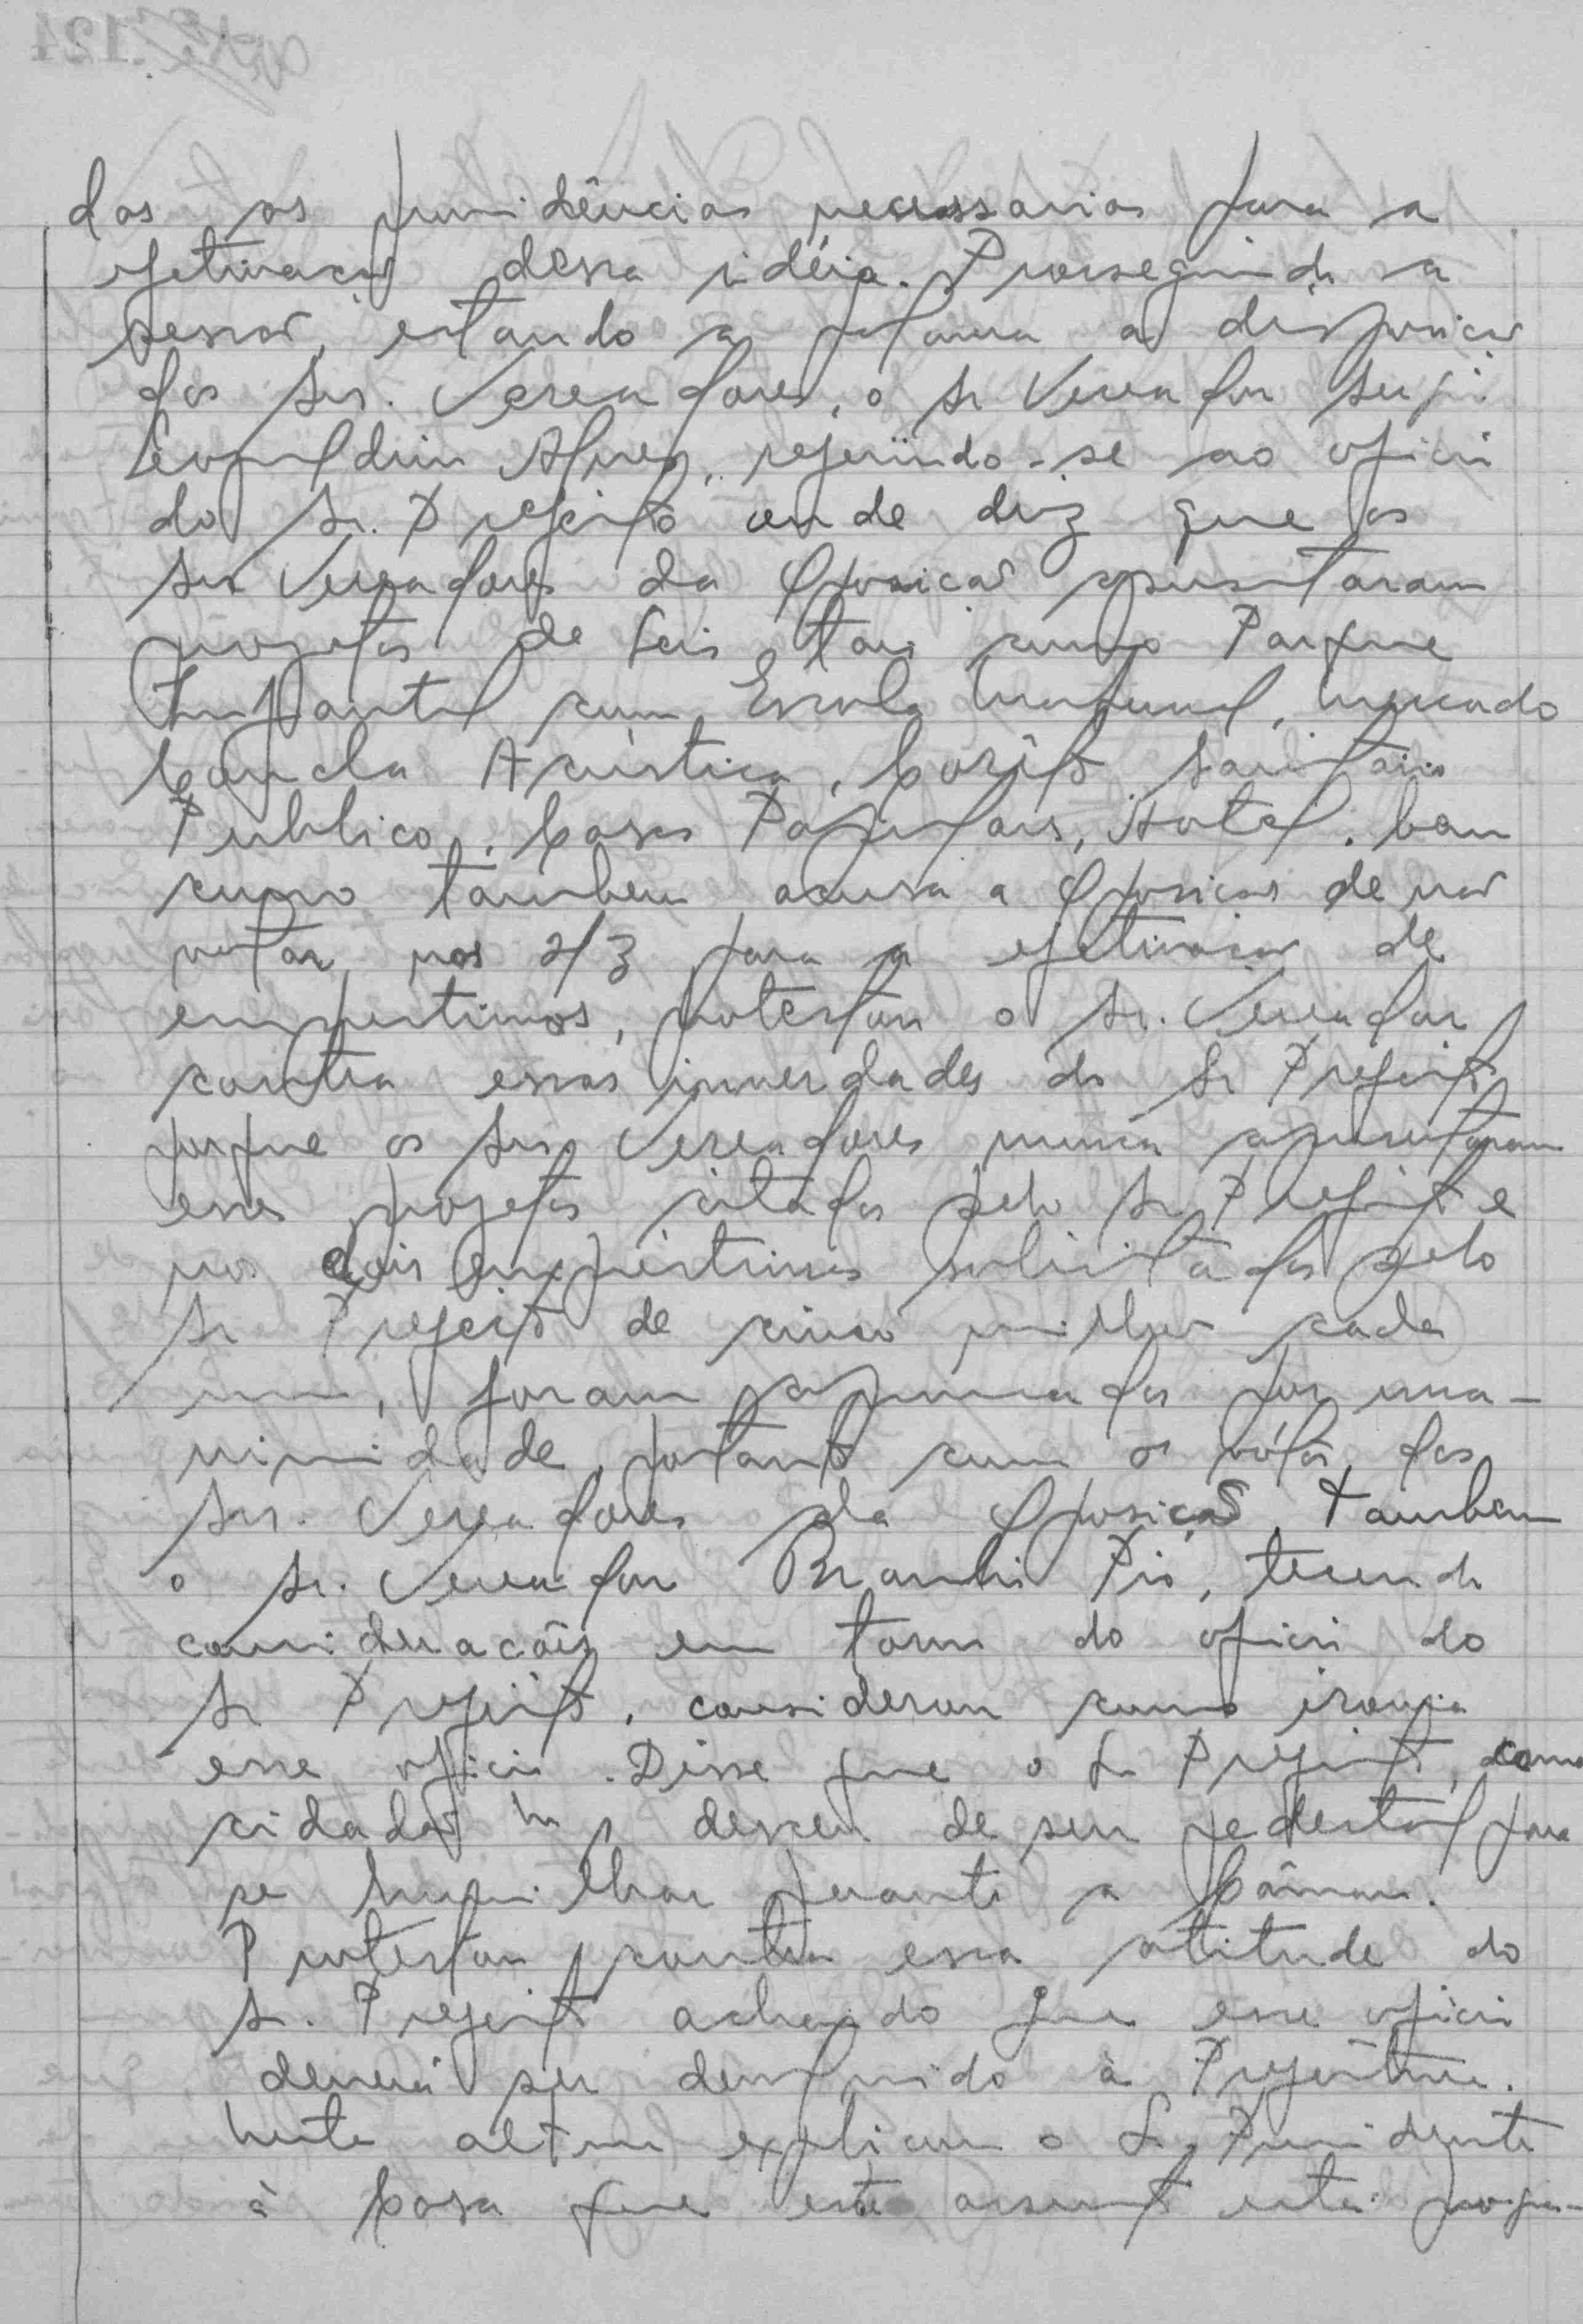 das as providências necessarias para a
efetivacao dessa idéia. Prosseguindo a
sessao, estando a palavra a disposicao
dos Srs. Vereadores, o Sr Vereador Sergio
Alves, referindo-se ao oficio
do Sr. Prefeito onde diz que os
Srs Vereadores da Oposicao apresentaram
projetos de Leis, tais como Parque
Infantil com Escola Maternal, Mercado
Concha Acústica, Corêto, Sanitario
Publico, Casas Populares, Hotel, bem
como tambem acusa a Oposicao de nao
votar nos 2/3 para a efetivacao de
emprestimos, protestou o Sr. Vereador
contra essas inverdades do Sr Prefeito
porque os Srs Vereadores nunca apresentaram
esses projetos citados pelo Sr Prefeito e
nos dois emprestimos solicitados pelo
Sr Prefeito de cinco milhoes cada
um, foram aprovados por una-
nimidade, portanto com os vótos dos
Srs. Vereadores da Oposição. Tambem
o Sr. Vereador Pio, tecendo
consideracões em torno do oficio do
Sr Prefeito, considerou como ironia
esse oficio. Disse que o Sr Prefeito, como
cidadao desceu de seu pedestal para
se humilhar perante a Câmara.
Protestou contra essa atitude do
Sr. Prefeito achando que esse oficio
deverá ser devolvido à Prefeitura.
Neste altura explicou o Sr. Presidente
à Casa que este assunto está